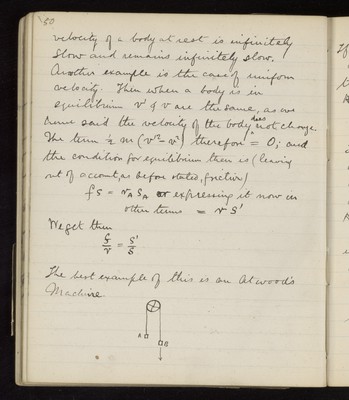 50
velocity of a body at rest is infinitely
slow and remains infinitely slow.
Another example is the case of uniform
velocity. Then when a body is in
equilibrium v' & v are the same, as we
have said the velocity of the body does not change.
The term ½ m (v'² - v²) therefore = 0; and
the condition for equilibrium then is (leaving
out of account, as before stated, friction)
f s = r_A s_A or expressing it now in
other terms = r s'
We get then
f/r = s'/s
The best example of this is an Atwood's
Machine
A
B